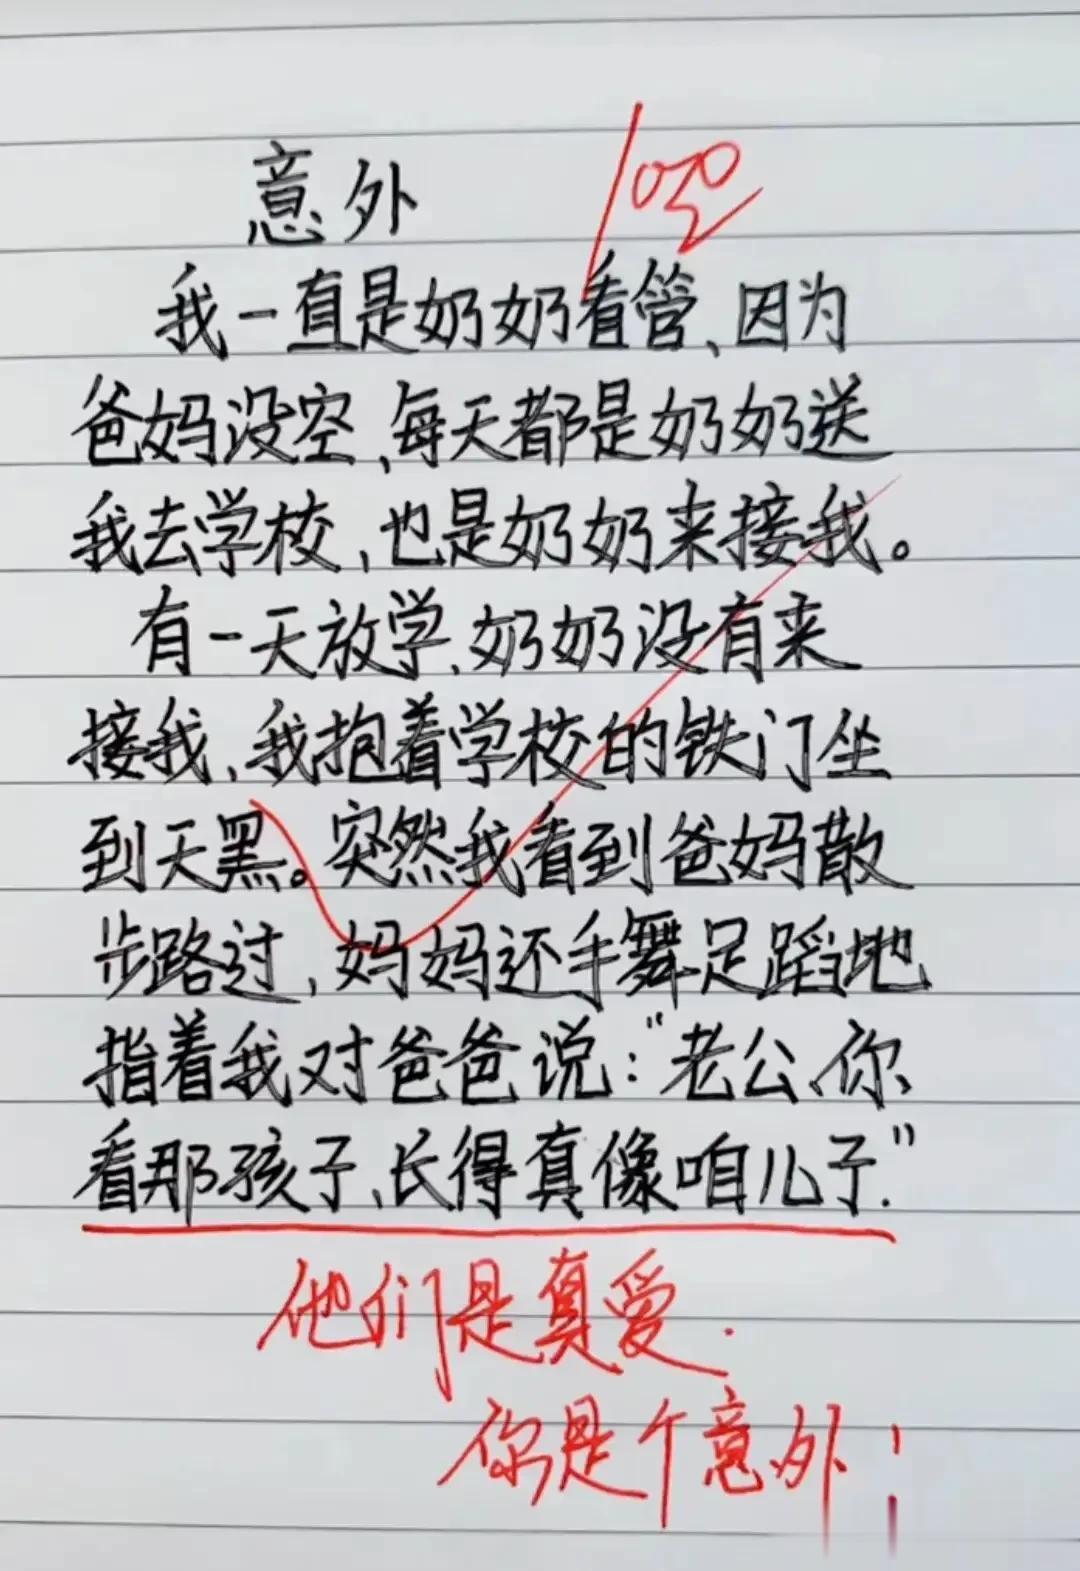 意外
100
我一直是奶奶看管、因为
爸妈没空,每天都是奶奶送
我去学校,也是奶奶来接我。
有一天放学,奶奶没有来
接我,我抱着学校的铁门坐
到天黑。突然我看到爸妈散
步路过,妈妈还手舞足蹈地
指着我对爸爸说:“老公、你
看那孩子、长得真像咱儿子.”
他们是真爱.
你是个意外!